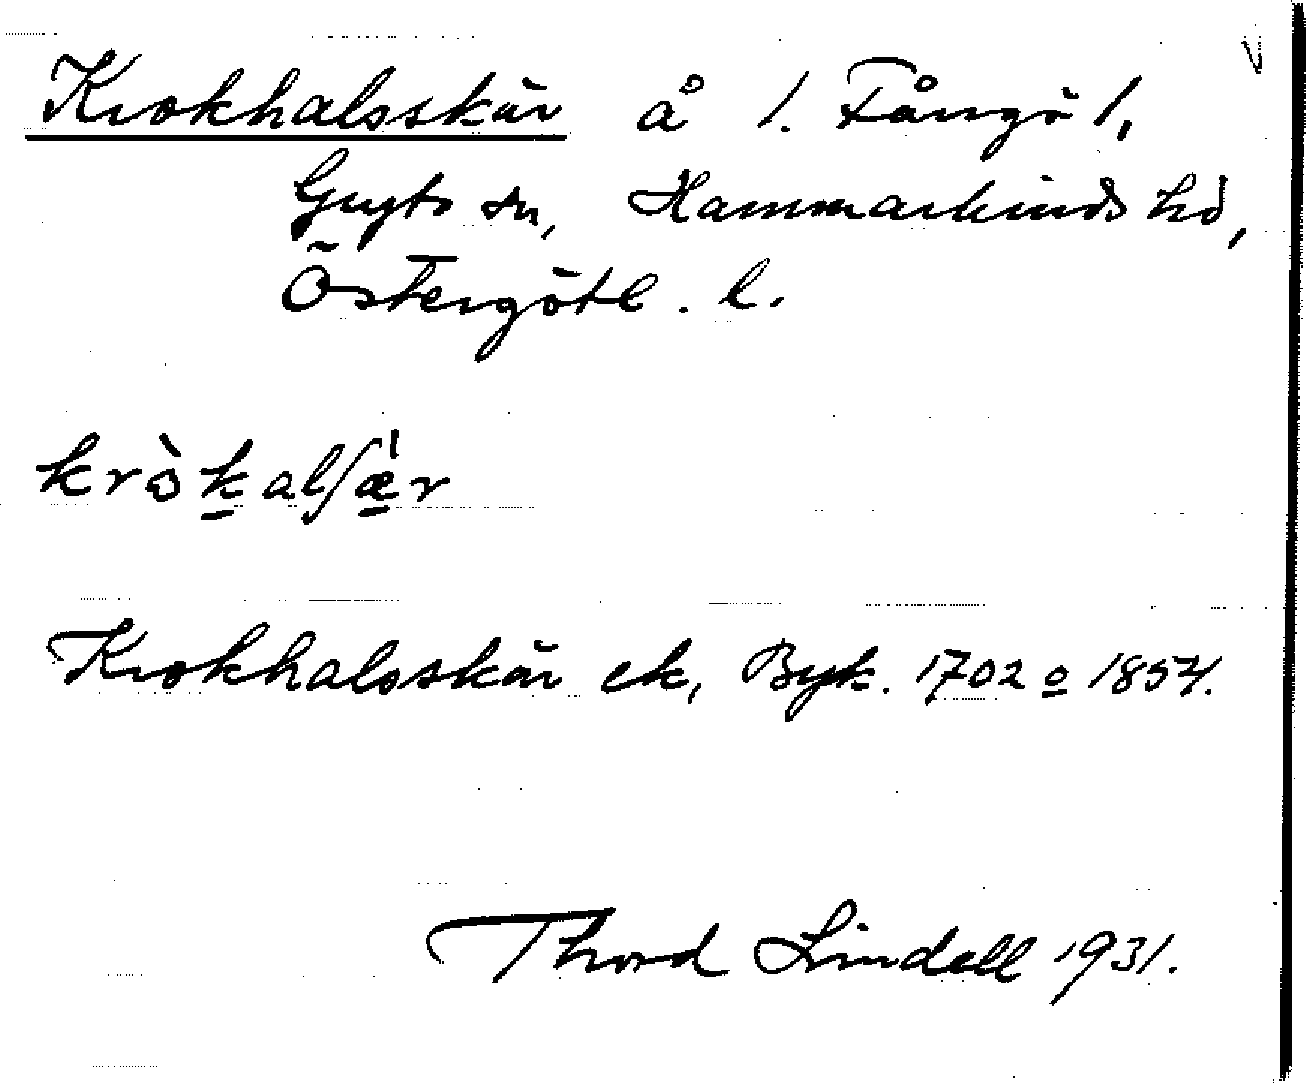 Krokhalsskär å /. Fångö /,
Gryts sn, Hammarkinds hd,
Östergötl. l.
kròkalʃæ̀r
Krokhalsskär ek, Byk. 1702 o 1854.
Thord Lindell 1931.